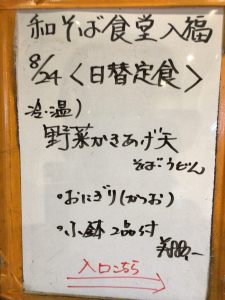 和そば食堂入福
8/24 <日替定食>
冷・温)
野菜かきあげ天
そばうどん
・おにぎり(かつお)
・小鉢2品付
入口こちら